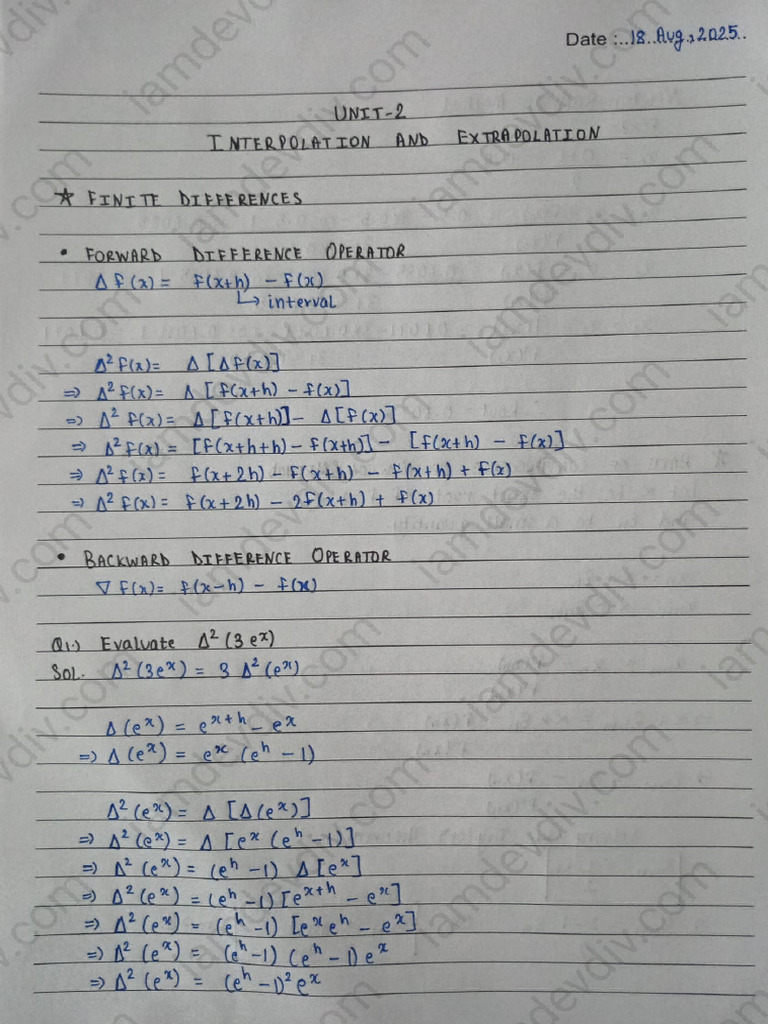 Date :..18..Aug.,2025..
UNIT-2
INTERPOLATION AND EXTRAPOLATION
☆ FINITE DIFFERENCES
• FORWARD DIFFERENCE OPERATOR
Δ f(x) = f(x+h) - f(x)
↳ interval
Δ² f(x) = Δ [Δ f(x)]
⇒ Δ² f(x) = Δ [f(x+h) - f(x)]
⇒ Δ² f(x) = Δ[f(x+h)] - Δ[f(x)]
⇒ Δ² f(x) = [f(x+h+h) - f(x+h)] - [f(x+h) - f(x)]
⇒ Δ² f(x) = f(x+2h) - f(x+h) - f(x+h) + f(x)
⇒ Δ² f(x) = f(x+2h) - 2f(x+h) + f(x)
• BACKWARD DIFFERENCE OPERATOR
∇ f(x) = f(x-h) - f(x)
Q1.) Evaluate Δ² (3eˣ)
SOL. Δ²(3eˣ) = 3 Δ²(eˣ)
Δ(eˣ) = eˣ⁺ʰ - eˣ
⇒ Δ(eˣ) = eˣ (eʰ - 1)
Δ²(eˣ) = Δ [Δ(eˣ)]
⇒ Δ²(eˣ) = Δ [eˣ (eʰ - 1)]
⇒ Δ² (eˣ) = (eʰ - 1) Δ[eˣ]
⇒ Δ² (eˣ) = (eʰ - 1) [eˣ⁺ʰ - eˣ]
⇒ Δ² (eˣ) = (eʰ - 1) [eˣ eʰ - eˣ]
⇒ Δ² (eˣ) = (eʰ - 1) (eʰ - 1) eˣ
⇒ Δ² (eˣ) = (eʰ - 1)² eˣ
iamdevdiv.com